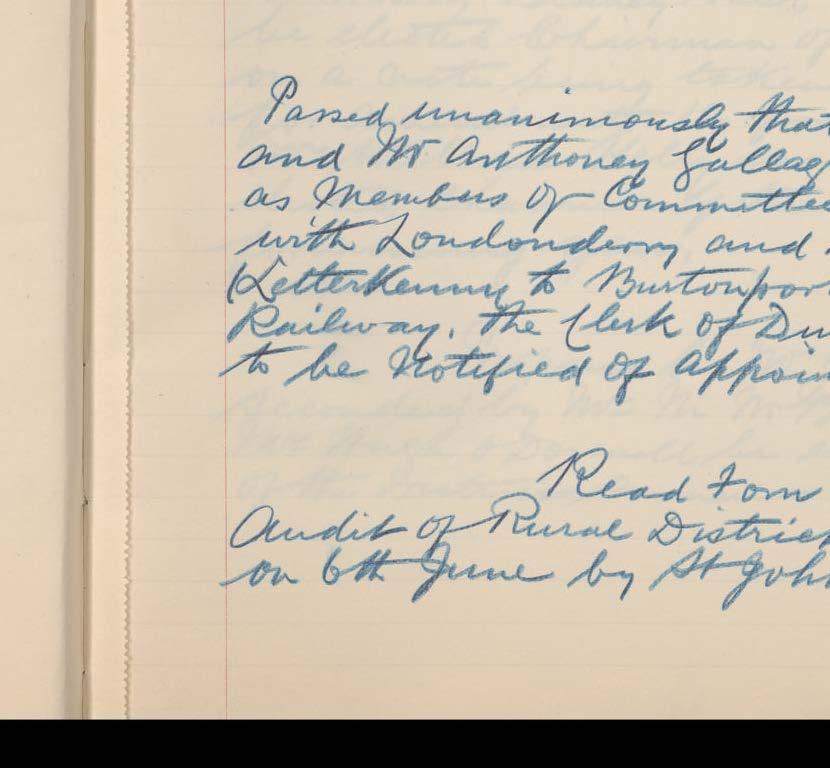 Passed unanimously that
and Mr Anthoney Gallag
as Members of Committee
with Londonderry and
Letterkenny to Burtonpor
Railway. The Clerk of Du
to be Notified of Appoin
Read Form
Audit of Rural District
on 6th June by St John